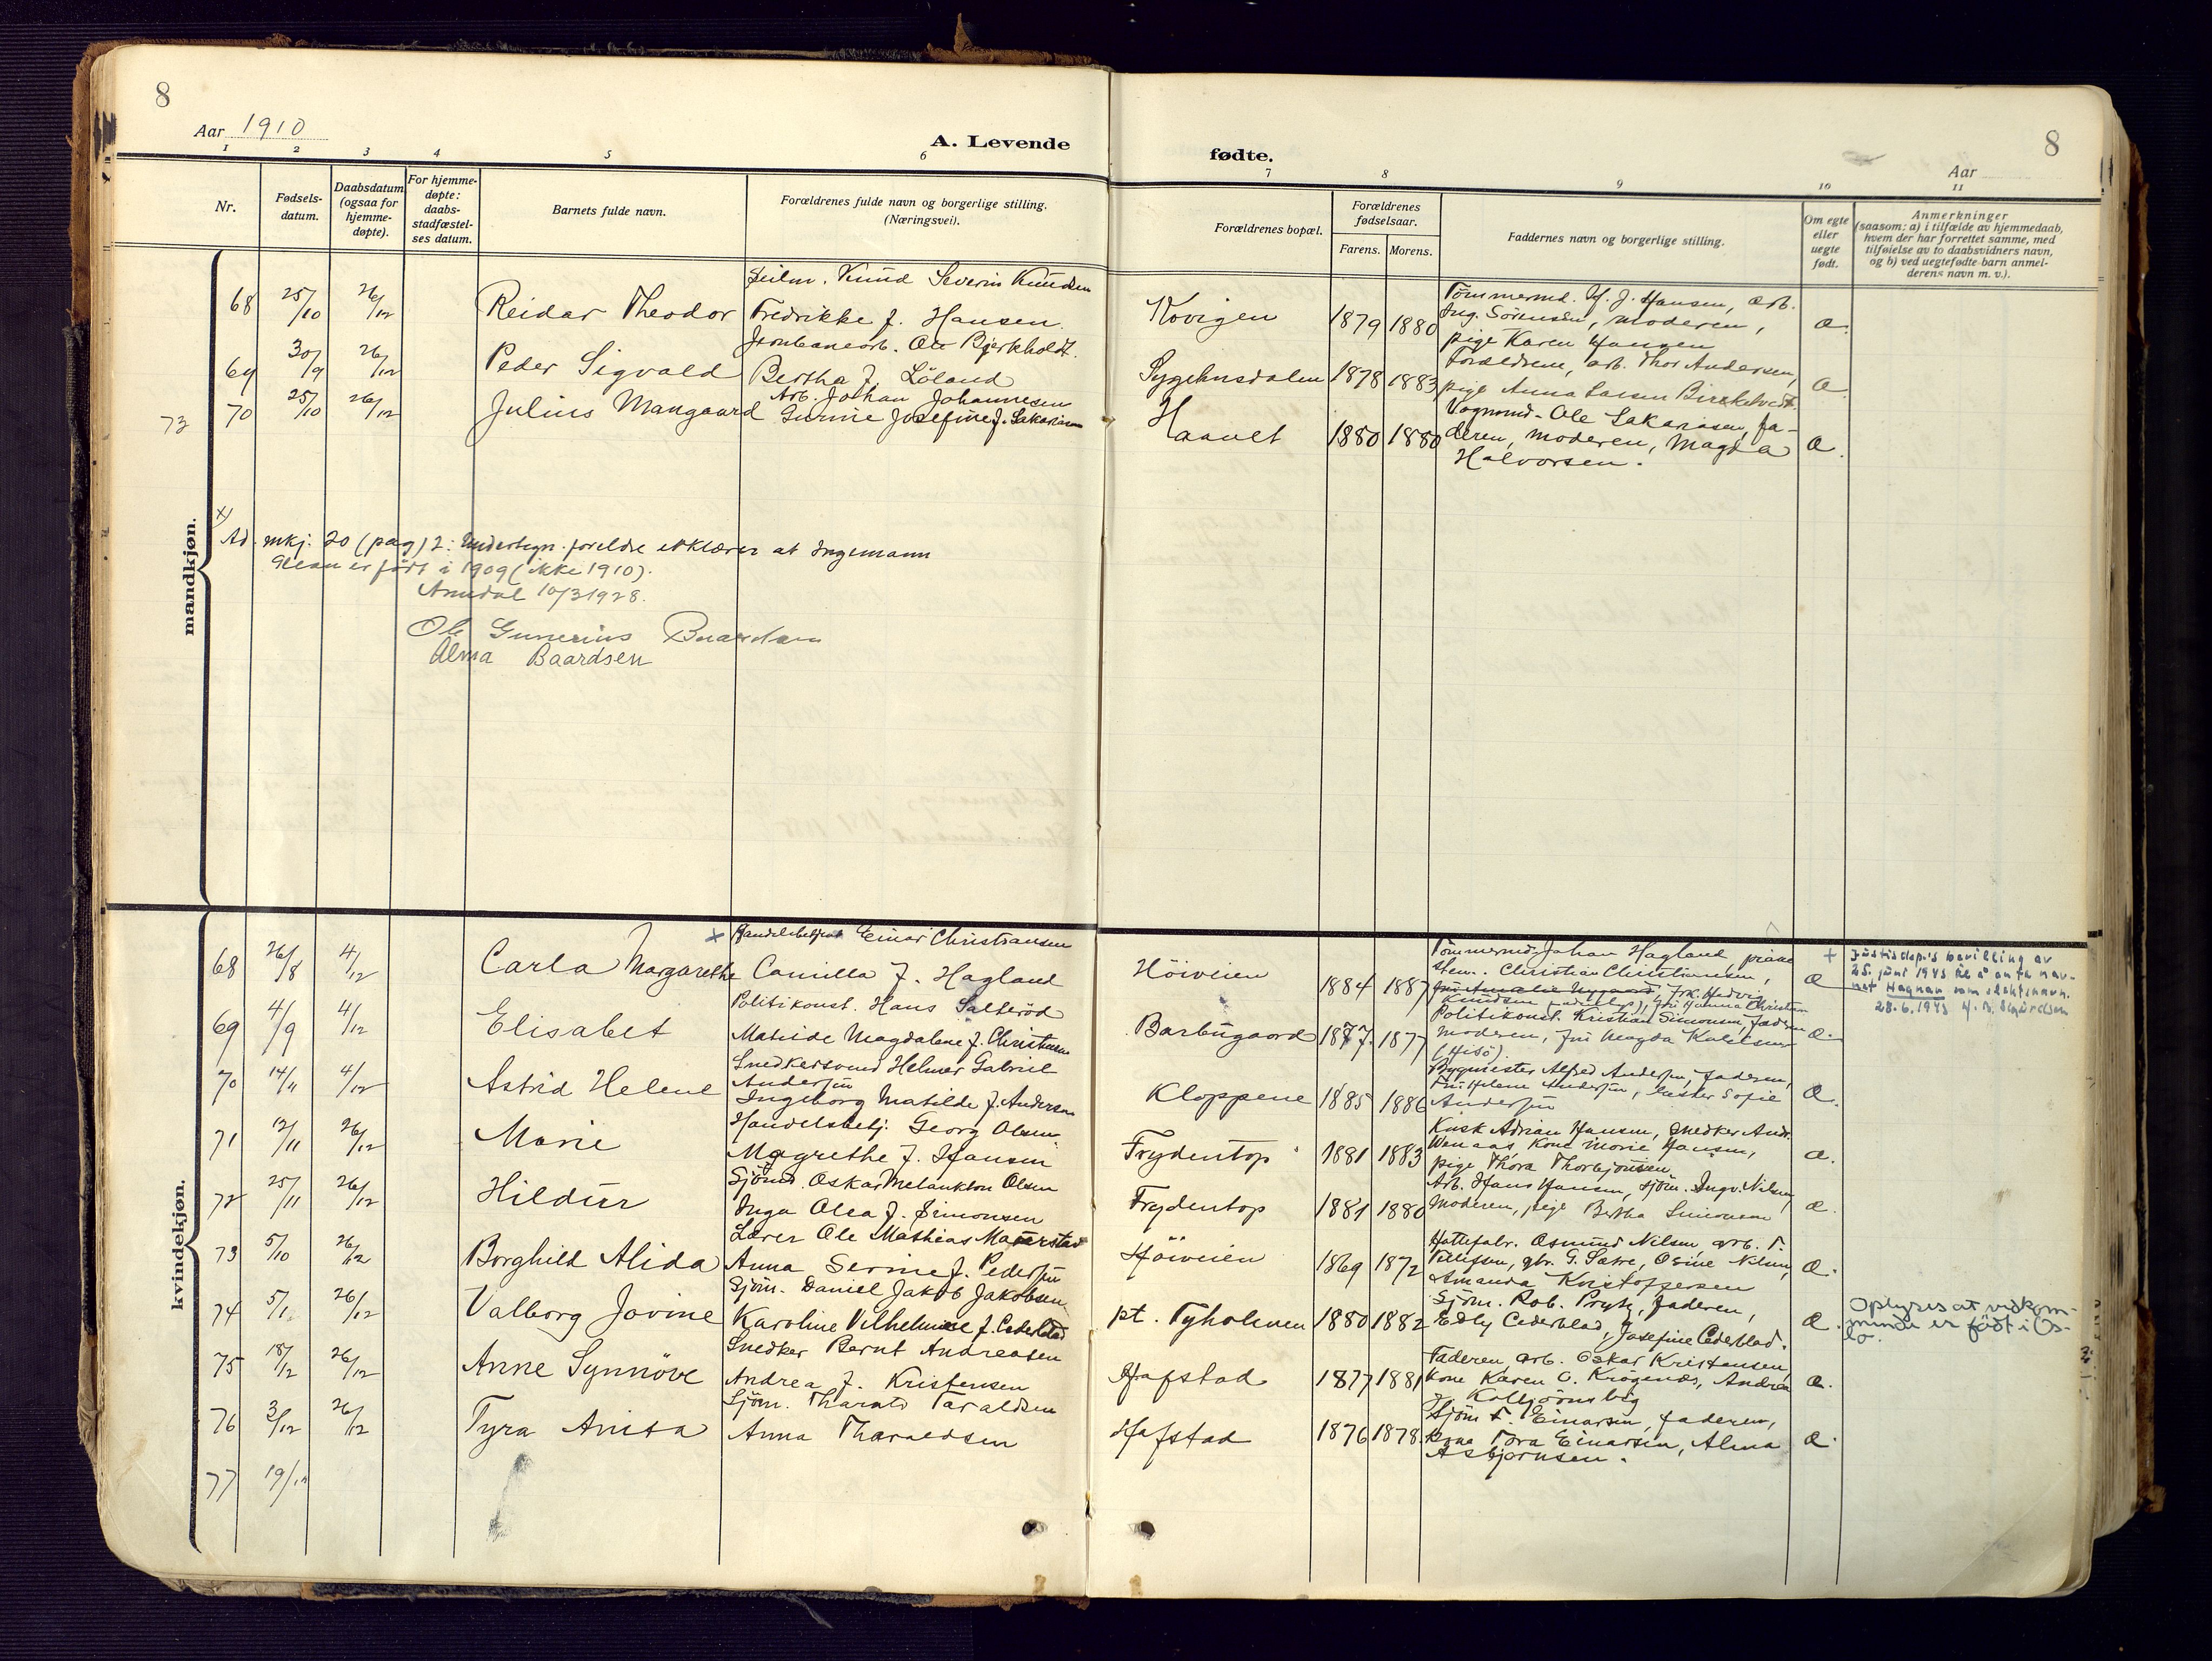 8
8
Aar 1910
A. Levende
fødte.
Aar
1 2 3 4 5 6 7 8 9 10 11
Nr.
Fødsels-
datum.
Daabsdatum
(ogsaa for
hjemme-
døpte).
For hjemme-
døpte:
daabs-
stadfæstel-
ses datum.
Barnets fulde navn.
Forældrenes fulde navn og borgerlige stilling.
(Næringsvei).
Forældrenes bopæl.
Forældrenes
fødselsaar.
Farens. Morens.
Faddernes navn og borgerlige stilling.
Om egte
eller
uegte
født.
Anmerkninger
(saasom: a) i tilfælde av hjemmedaab,
hvem der har forrettet samme, med
tilføielse av to daabsvidners navn,
og b) ved uegtefødte barn anmel-
derens navn m. v.).
mandkjøn.
68 25/10 26/12 Reidar Theodor
Knud Severin Knudsen
Fredrikke f. Hansen
Kovigen 1879 1880
Tømmermd. H. J. Hansen, arb.
Ing. Sörensen, moderen,
pige Karen Hansen
Æ.
69 30/9 26/12 Peder Sigvald
Jernbanearb. Ole Bjerkholdt.
Bertha f. Löland
Sygehusdalen 1878 1883
Forældrene, arb. Thor Andersen,
pige Anna Larsen Birketvedt.
Æ
73
70 25/10 26/12 Julius Mangaard
Arb. Johan Johannesen
Gurine Josefine f. Sakariasen
Haavet 1880 1880
Vognmd. Ole Sakariasen, fa-
deren, moderen, Magda
Halvorsen.
Æ.
x)
Ad. mkj. 20 (pag) 2: Undertegn. foreldre erklærer at Ingemann
er født i 1909 (ikke 1910).
Arendal 10/3 1928.
Ole Gunerius Baardsen
Alma Baardsen
kvindekjøn.
68 26/8 4/12 Carla Margarethe
x Handelsbetjent Einar Christiansen
Camilla f. Hagland
Höiveien 1884 1887
Tømmermd. Johan Hagland,
Christian Christiansen,
Æ
+ Justisdep's bevilling av
25. juni 1943 til å anta nav-
net Hagnan som slektsnavn.
28.6.1943
69 4/9 4/12 Elisabet
Politikonst. Hans Salteröd
Matilde Magdalene f. Christensen
Barbugaard 1877 1877
Politikonst. Kristian Simonsen, faderen
moderen, fru Magda
(Hisö).
Æ.
70 14/11 4/12 Astrid Helene
Snedkersvend Helmer Gabriel
Andersen
Ingeborg Matilde f. Andersen
Kloppene 1885 1886
Bygmester Alfred Andersen, faderen,
Fru Helene Andersen, Sofie
Andersen
Æ.
71 12/11 26/12 Marie
Handelsbetj. Georg Olsen
Magrethe f. Hansen
Frydentop 1881 1883
Kusk Adrian Hansen, snedker Andr.
Kone Marie Hansen,
pige Thora Thorbjörnsen
Æ.
72 25/11 26/12 Hildur
Sjömd. Oskar Melankton Olsen
Inga Olea f. Simonsen
Frydentop 1881 1880
Arb. Hans Hansen, sjöm. Ingv. Nilsen,
Moderen, pige Bertha Simonsen
Æ.
73 5/10 26/12 Borghild Alida
Lærer Ole Mathias
Anna Serine f. Pedersen
Höiveien 1869 1872
Hattefabr. Osmund Nilsen, arb. T.
Tellefsen, gbr. G. Sætre, Osine Nilsen,
Amanda Kristoffersen
Æ.
74 26/12 Valborg Jovine
Sjöm. Daniel Jakob Jakobsen
Karoline Vilhelmine f. Cederblad
pt. Tyholmen 1880 1882
Sjöm. Rob. faderen,
Edly Cederblad, Josefine Cederblad.
Æ.
Oplyses at vedkom-
mende er født i Os-
lo.
75 18/12 26/12 Anne Synnöve
Snedker Bernt Andreasen
Andrea f. Kristensen
Hafstad 1877 1881
Faderen, arb. Oskar Kristensen,
kone Karen O. Krögenæs, Andrea
Kolbjörnsvig
Æ.
76 3/12 26/12 Tyra Anita
Sjöm. Tharald Taraldsen
Anna Tharaldsen
Hafstad 1876 1878
Sjöm T. Einarsen, faderen,
kone Tora Einarsen, Alma
Asbjørnsen.
Æ.
77